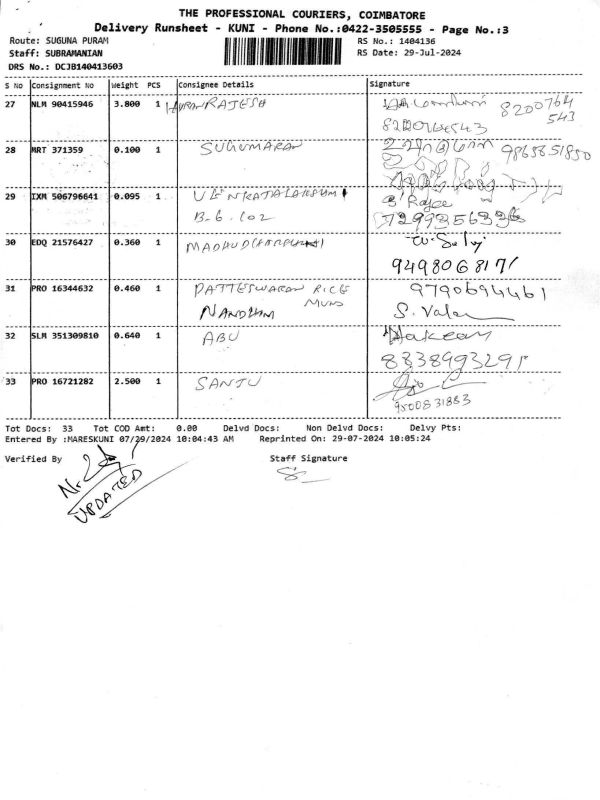 THE PROFESSIONAL COURIERS, COIMBATORE
Delivery Runsheet - KUNI - Phone No.:0422-3505555 - Page No.:3
Route: SUGUNA PURAM RS No.: 1404136
Staff: SUBRAMANIAN RS Date: 29-Jul-2024
DRS No.: DCJB140413603
S No Consignment No Weight PCS Consignee Details Signature
27 NLM 90415946 3.800 1 RAJESH 8200764
543
28 MRT 371359 0.100 1 SUGUMARAN 9865851850
29 IXM 506796641 0.095 1
B-6.102 7299356336
30 EDQ 21576427 0.360 1 W. Selvi
9498068171
31 PRO 16344632 0.460 1 PATTESWARAN RICE 9790694461
NANDHINI S. Valar
32 SLM 351309810 0.640 1 ABU Hakeem
8838993291
33 PRO 16721282 2.500 1 SANJU
9500831883
Tot Docs: 33 Tot COD Amt: 0.00 Delvd Docs: Non Delvd Docs: Delvy Pts:
Entered By :MARESKUNI 07/29/2024 10:04:43 AM Reprinted On: 29-07-2024 10:05:24
Verified By Staff Signature
UPDATED